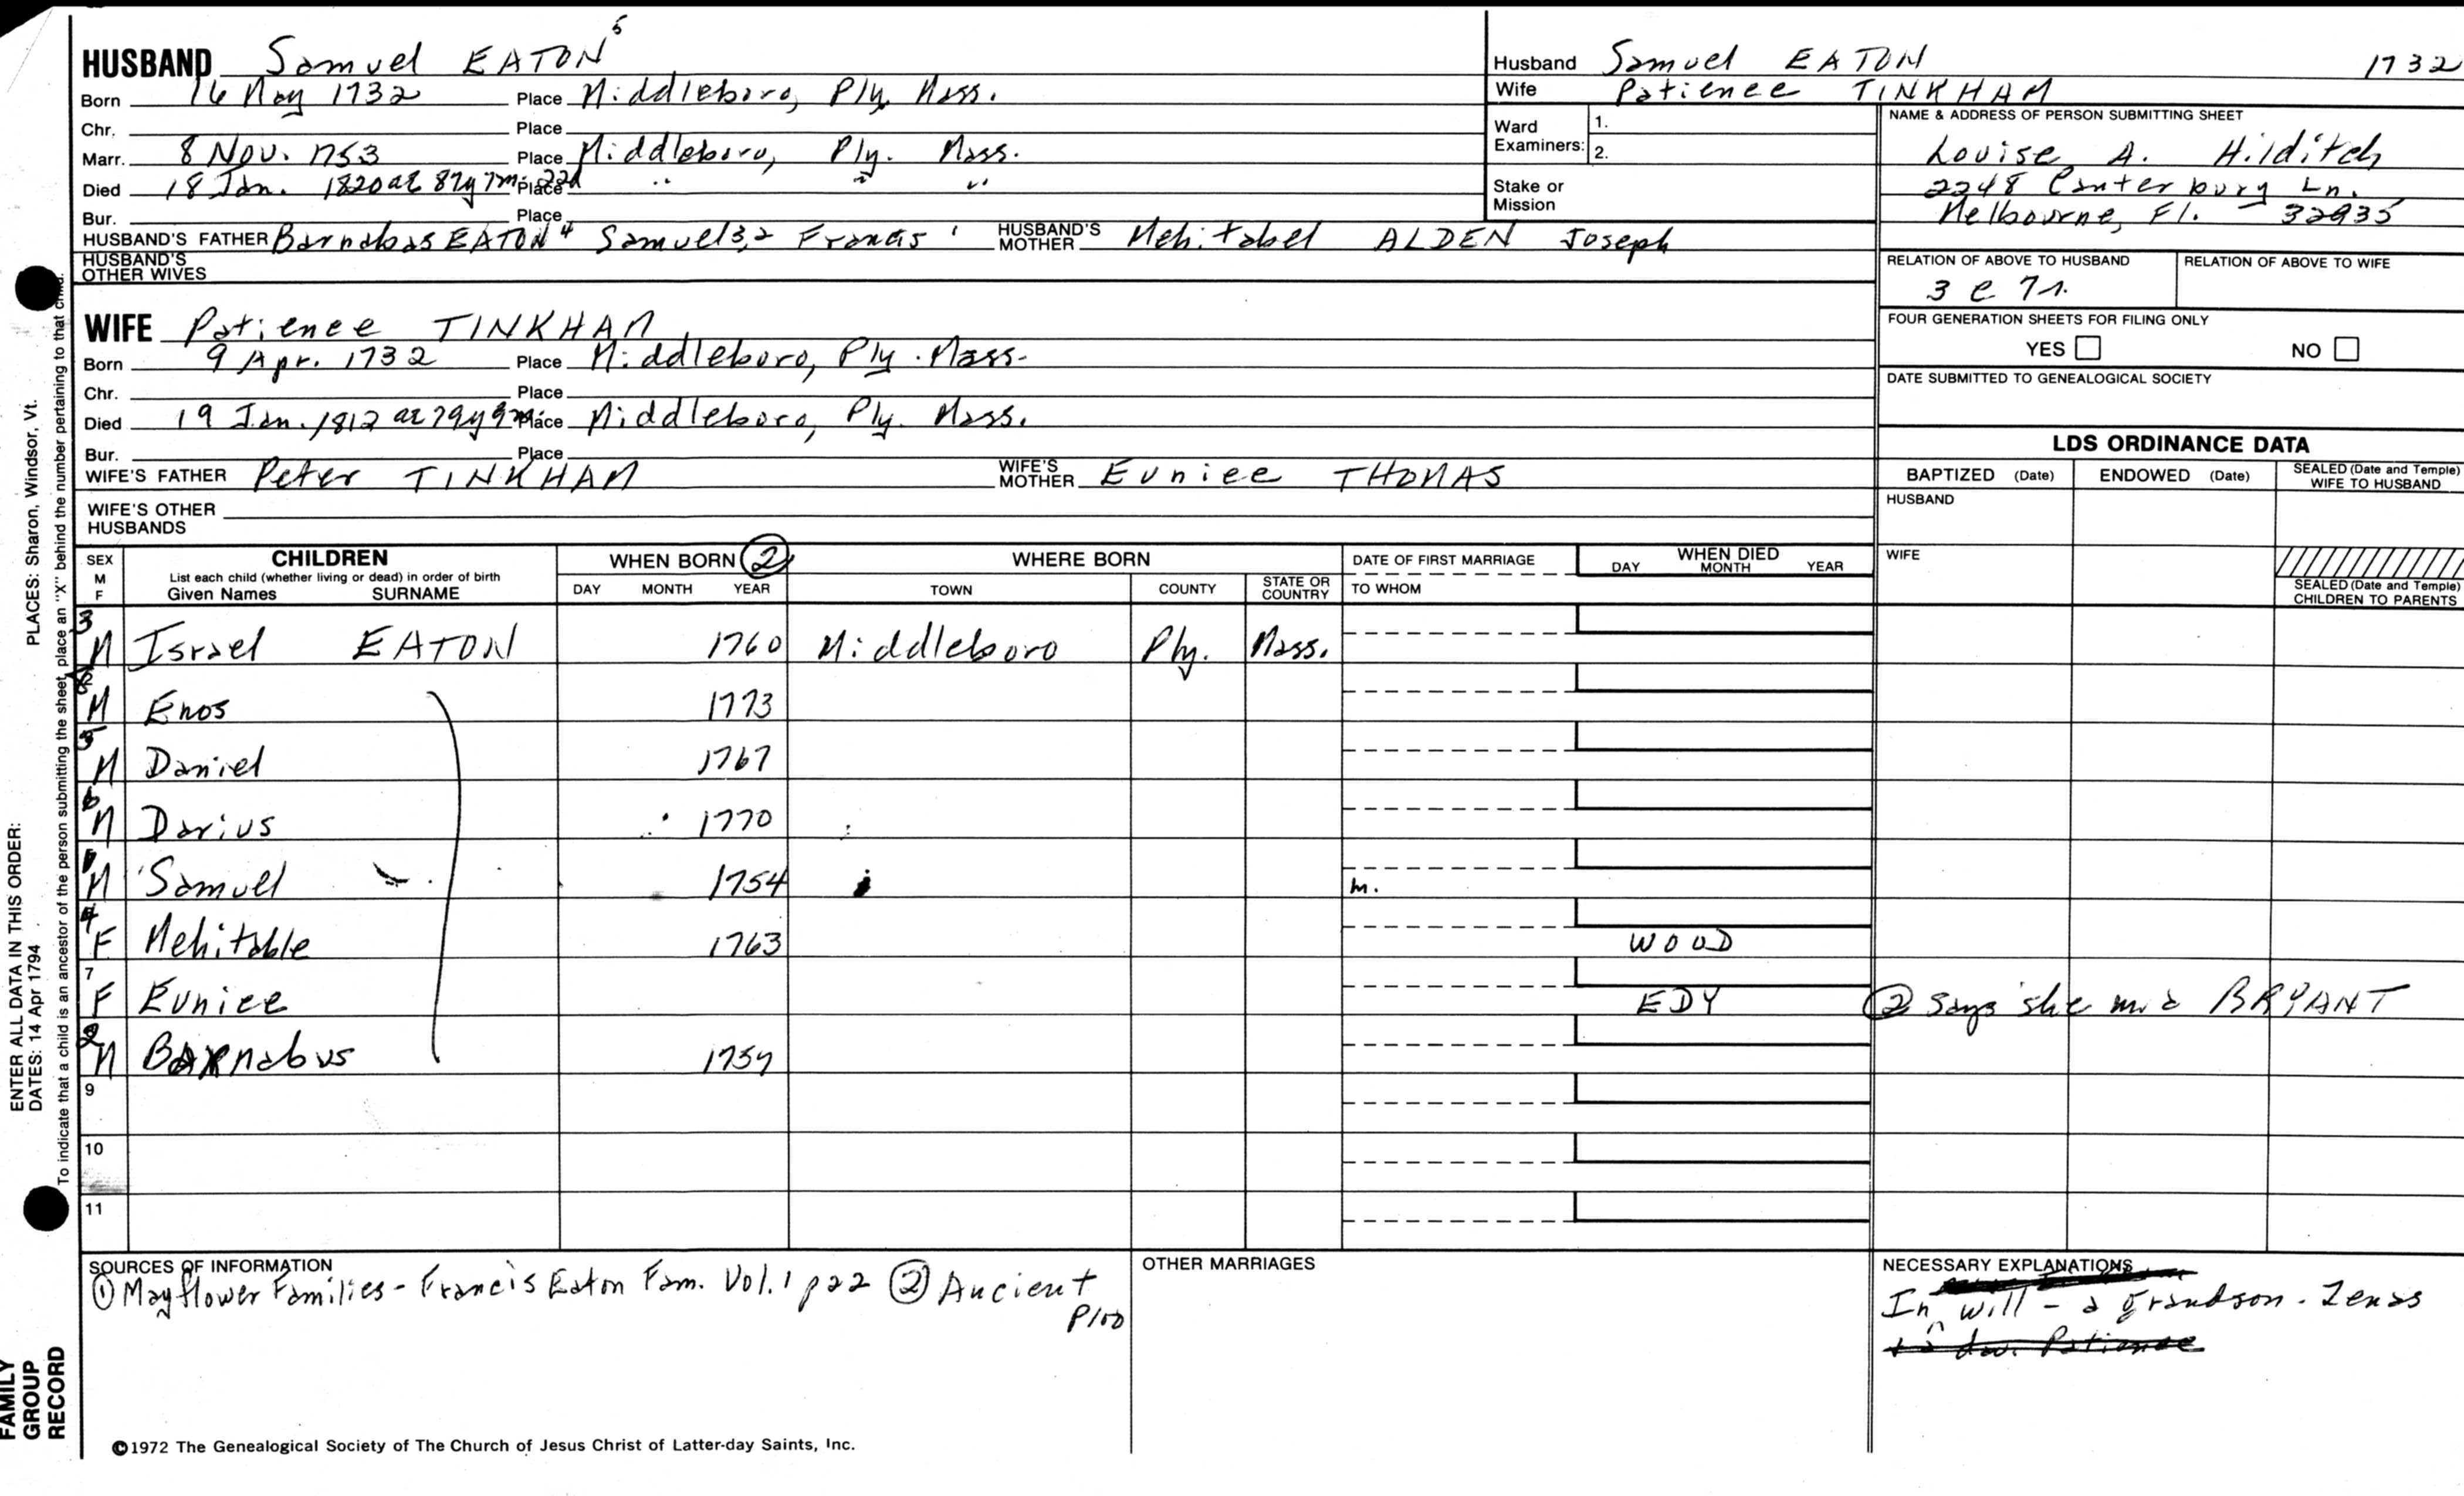 HUSBAND Samuel EATON 5
Born 16 May 1732 Place Middleboro, Ply. Mass.
Chr. Place
Marr. 8 Nov. 1753 Place Middleboro, Ply. Mass.
Died 18 Jan. 1820 ae 87y 7m 22d Place " " "
Bur. Place
HUSBAND'S FATHER Barnabas EATON 4 Samuel 3,2 Francis 1 HUSBAND'S MOTHER Mehitabel ALDEN Joseph
HUSBAND'S OTHER WIVES
Husband Samuel EATON 1732
Wife Patience TINKHAM
Ward Examiners: 1.
2.
Stake or Mission
NAME & ADDRESS OF PERSON SUBMITTING SHEET
Louise A. Hilditch
2248 Canterbury Ln.
Melbourne, Fl. 32935
RELATION OF ABOVE TO HUSBAND RELATION OF ABOVE TO WIFE
3 c 7r.
FOUR GENERATION SHEETS FOR FILING ONLY
YES NO
DATE SUBMITTED TO GENEALOGICAL SOCIETY
WIFE Patience TINKHAM
Born 9 Apr. 1732 Place Middleboro, Ply. Mass.
Chr. Place
Died 19 Jan. 1812 ae 79y 9m Place Middleboro, Ply. Mass.
Bur. Place
WIFE'S FATHER Peter TINKHAM WIFE'S MOTHER Eunice THOMAS
WIFE'S OTHER HUSBANDS
LDS ORDINANCE DATA
BAPTIZED (Date) ENDOWED (Date) SEALED (Date and Temple) WIFE TO HUSBAND
HUSBAND
WIFE
SEALED (Date and Temple) CHILDREN TO PARENTS
SEX M F CHILDREN WHEN BORN ② WHERE BORN DATE OF FIRST MARRIAGE WHEN DIED
List each child (whether living or dead) in order of birth
Given Names SURNAME DAY MONTH YEAR TOWN COUNTY STATE OR COUNTRY TO WHOM DAY MONTH YEAR
3 M Israel EATON 1760 Middleboro Ply. Mass.
8 M Enos 1773
5 M Daniel 1767
6 M Darius 1770
1 M Samuel 1754 m.
4 F Mehitable 1763 WOOD
7 F Eunice EDY ② says she m. a BRYANT
2 M Barnabus 1757
9
10
11
SOURCES OF INFORMATION
① Mayflower Families - Francis Eaton Fam. Vol. 1 p22 ② Ancient
P100
OTHER MARRIAGES
NECESSARY EXPLANATIONS
In will - a grandson - Zenas
+ a dau. Patience
©1972 The Genealogical Society of The Church of Jesus Christ of Latter-day Saints, Inc.
ENTER ALL DATA IN THIS ORDER:
DATES: 14 Apr 1794
PLACES: Sharon, Windsor, Vt.
To indicate that a child is an ancestor of the person submitting the sheet, place an "X" behind the number pertaining to that child.
FAMILY
GROUP
RECORD